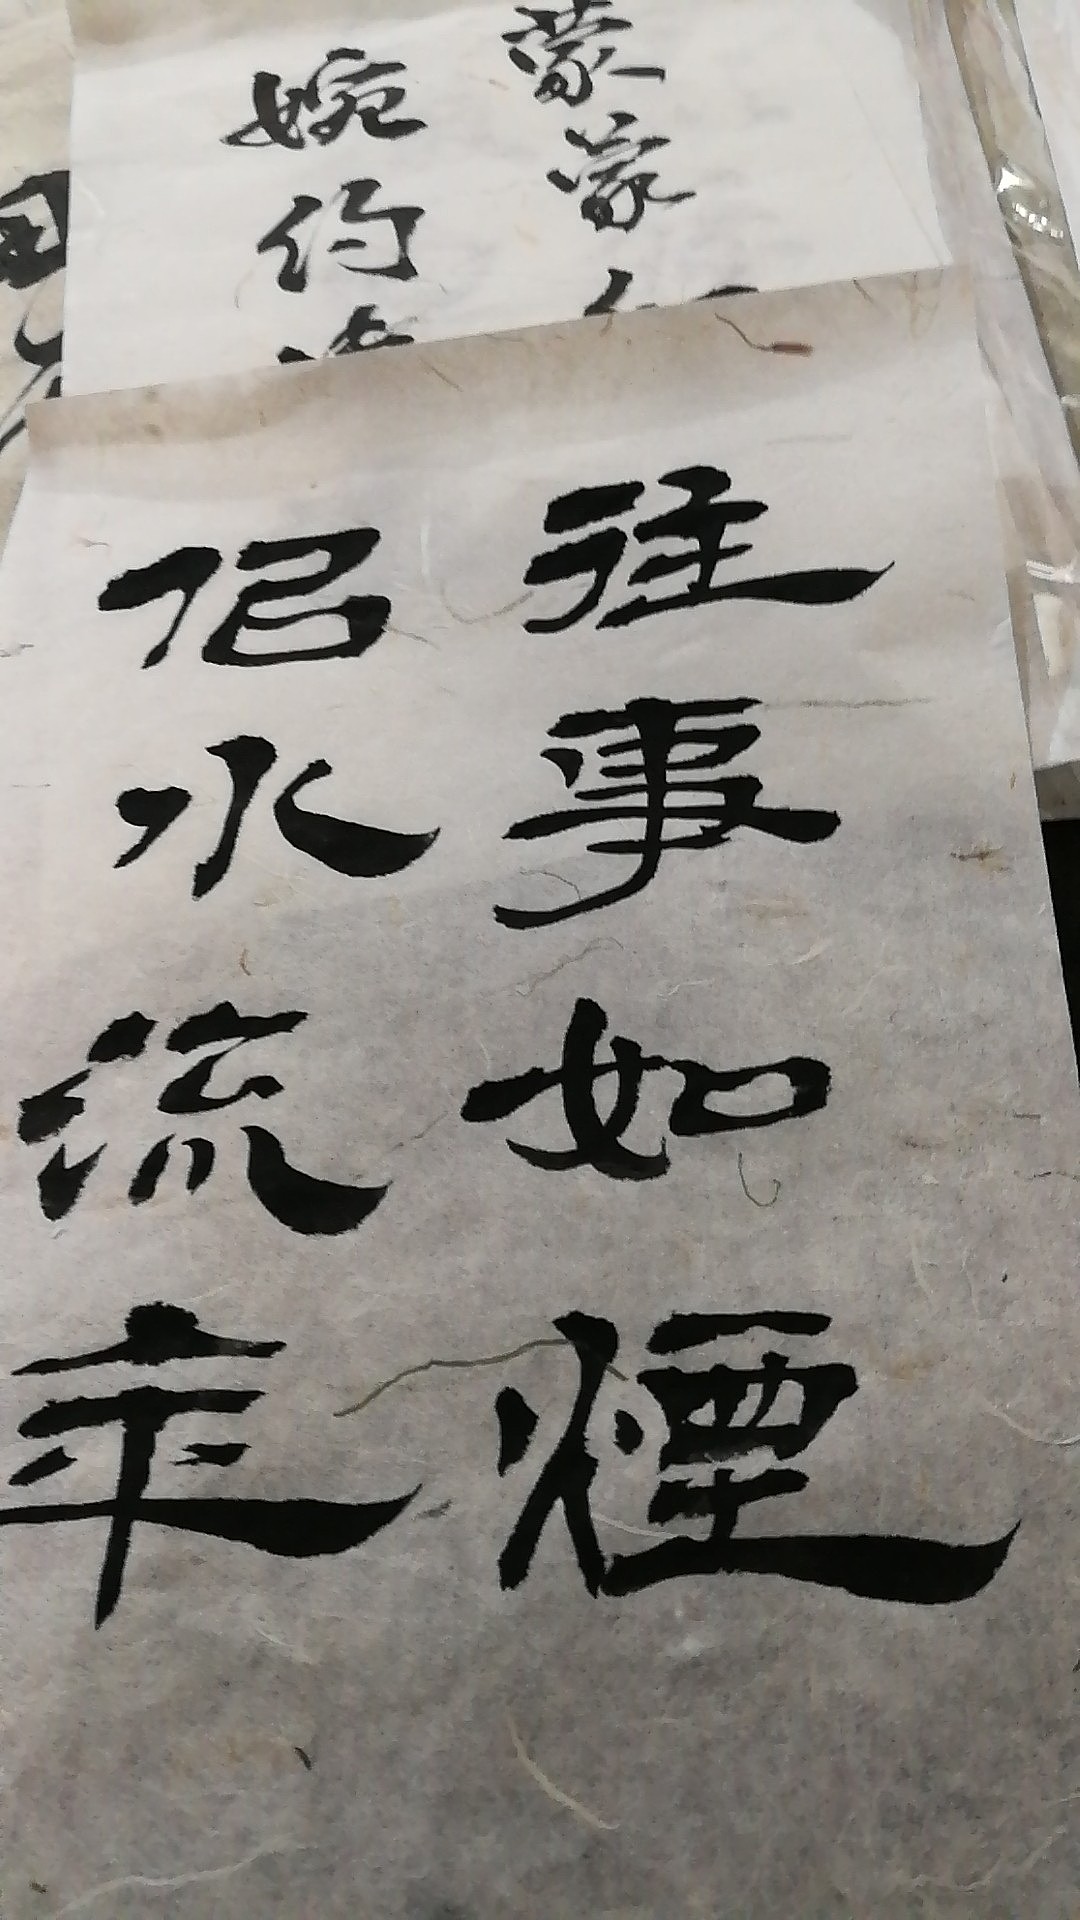 蒙蒙
婉约
往事如煙
佀水流年